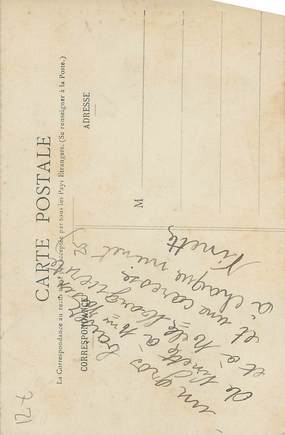 CARTE POSTALE
La Correspondance au recto n'est pas acceptée par tous les Pays Etrangers. (Se renseigner à la Poste.)
CORRESPONDANCE
ADRESSE
M
un gros
de Ninette à Mr
et à Melle
et une caresse
à chaque minet
Ninette
12-t